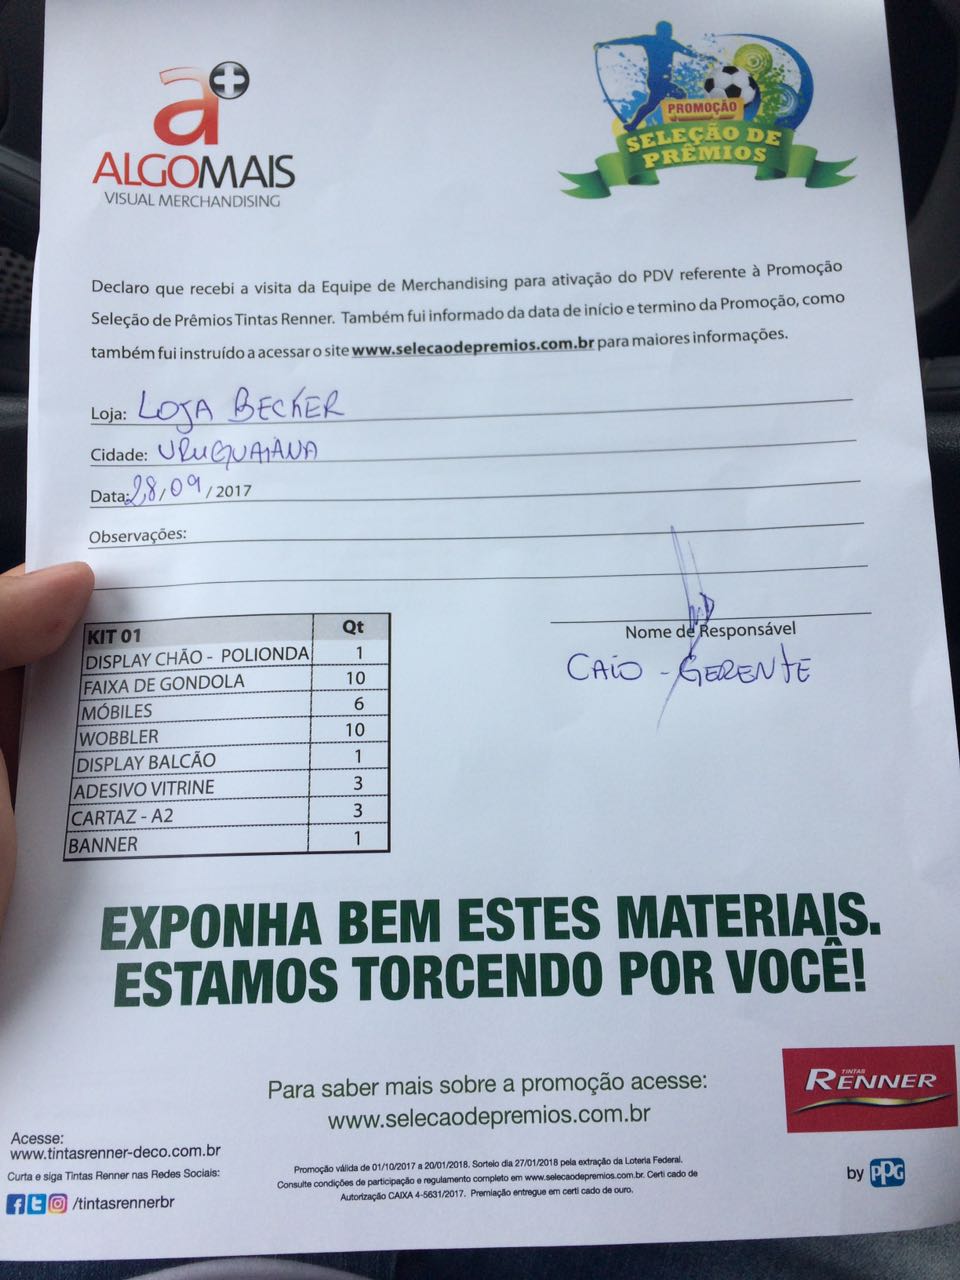 a+
ALGOMAIS
VISUAL MERCHANDISING
PROMOÇÃO
SELEÇÃO DE
PRÊMIOS
Declaro que recebi a visita da Equipe de Merchandising para ativação do PDV referente à Promoção
Seleção de Prêmios Tintas Renner. Também fui informado da data de início e termino da Promoção, como
também fui instruído a acessar o site www.selecaodepremios.com.br para maiores informações.
Loja: LOJA BECKER
Cidade: URUGUAIANA
Data: 28/09/2017
Observações:
Nome de Responsável
CAIO - GERENTE
KIT 01 Qt
DISPLAY CHÃO - POLIONDA 1
FAIXA DE GONDOLA 10
MÓBILES 6
WOBBLER 10
DISPLAY BALCÃO 1
ADESIVO VITRINE 3
CARTAZ - A2 3
BANNER 1
EXPONHA BEM ESTES MATERIAIS.
ESTAMOS TORCENDO POR VOCÊ!
Para saber mais sobre a promoção acesse:
www.selecaodepremios.com.br
TINTAS
RENNER
Acesse:
www.tintasrenner-deco.com.br
Curta e siga Tintas Renner nas Redes Sociais:
/tintasrennerbr
Promoção válida de 01/10/2017 a 20/01/2018. Sorteio dia 27/01/2018 pela extração da Loteria Federal.
Consulte condições de participação e regulamento completo em www.selecaodepremios.com.br. Certi cado de
Autorização CAIXA 4-5631/2017. Premiação entregue em certi cado de ouro.
by PPG